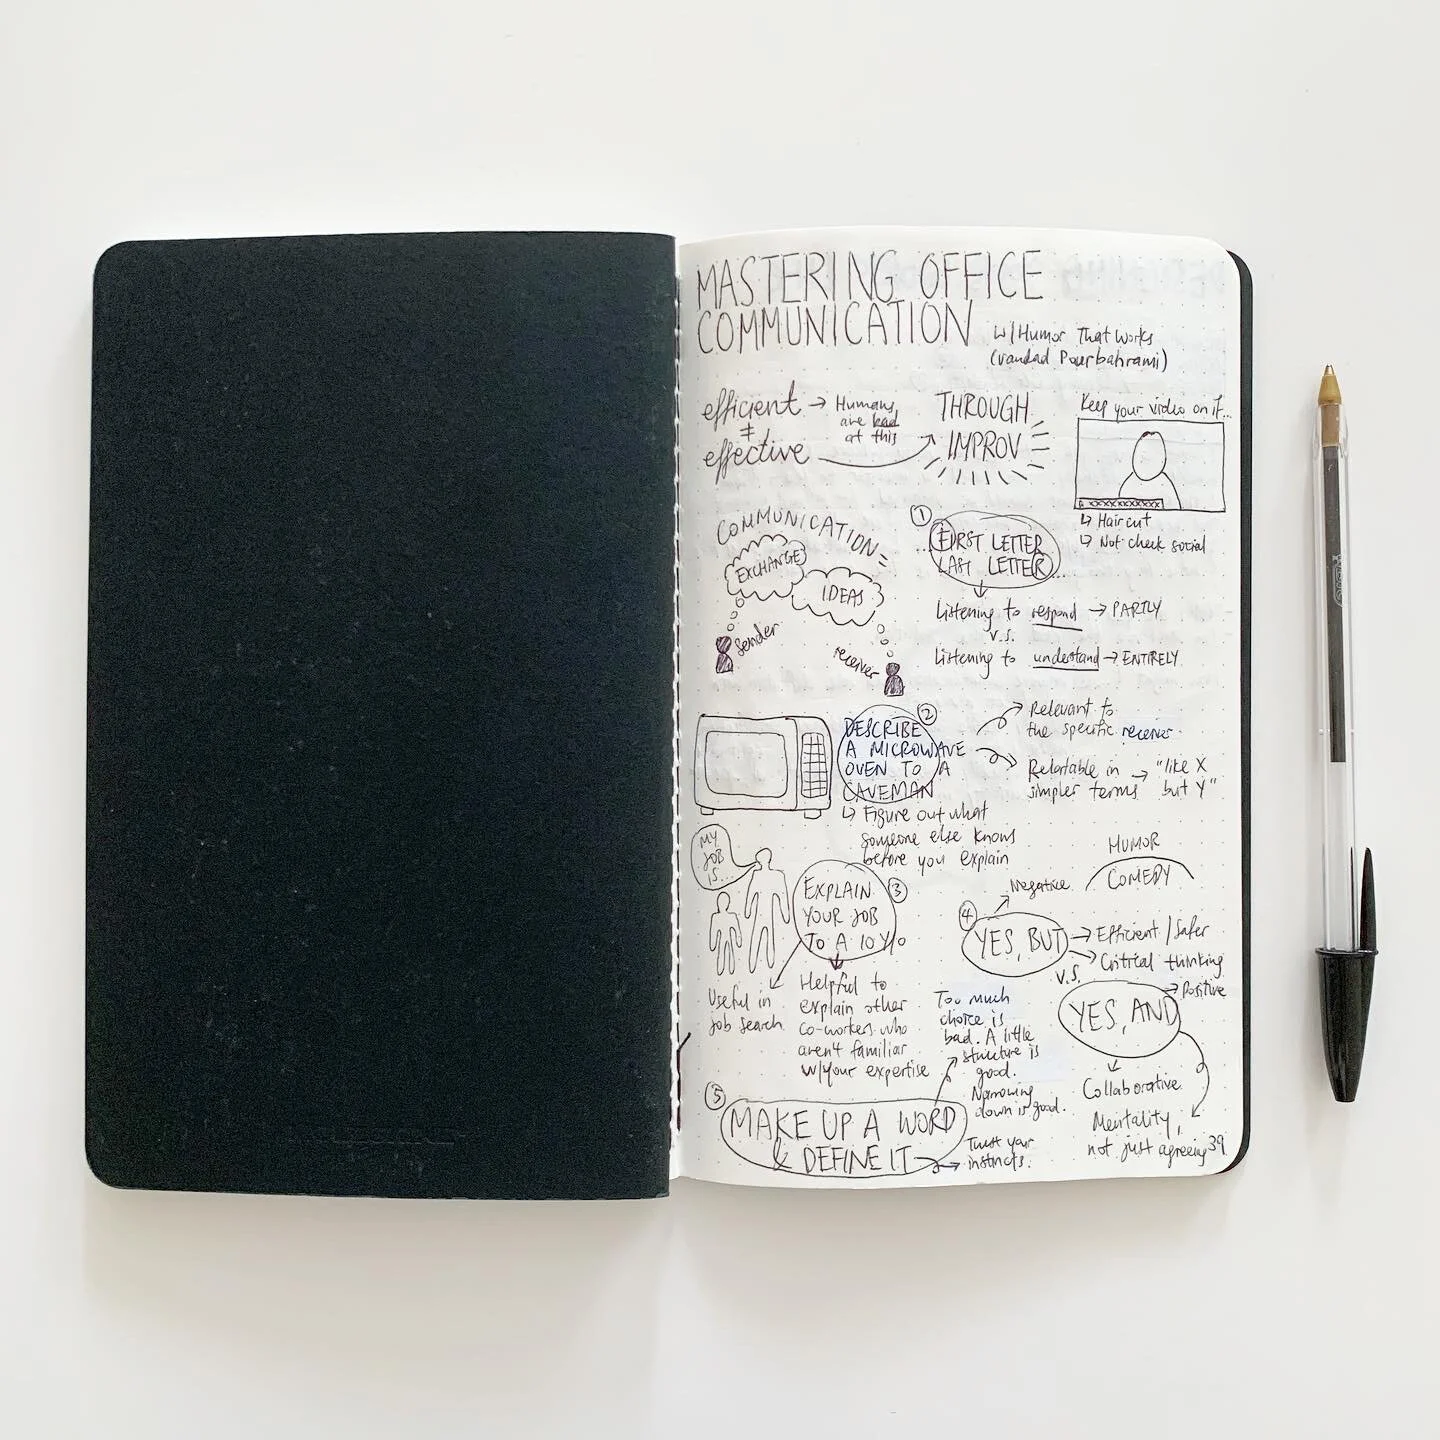 MASTERING OFFICE
COMMUNICATION
w/Humor That Works
(Vandad Pourbahrami)
efficient
≠
effective
→ Humans
are bad
at this
THROUGH
IMPROV
Keep your video on if...
xxxxxxxxxxx
↳ Haircut
↳ Not check social
COMMUNICATION =
EXCHANGE
IDEAS
sender
receiver
①
...FIRST LETTER
LAST LETTER...
Listening to respond → PARTLY
v.s.
Listening to understand → ENTIRELY
②
DESCRIBE
A MICROWAVE
OVEN TO A
CAVEMAN
→ Relevant to
the specific receiver
→ Relatable in
simpler terms
→ "like X
but Y"
↳ Figure out what
someone else knows
before you explain
MY
JOB
IS...
③
EXPLAIN
YOUR JOB
TO A 10 Y/o
Useful in
job search
Helpful to
explain other
co-workers who
aren't familiar
w/your expertise
HUMOR
COMEDY
④
YES, BUT
Negative
→ Efficient / Safer
→ Critical thinking
v.s.
YES, AND
→ Positive
Collaborative
Mentality,
not just agreeing
⑤
MAKE UP A WORD
& DEFINE IT
Too much
choice is
bad. A little
structure is
good.
Narrowing
down is good.
→ Trust your
instincts.
39